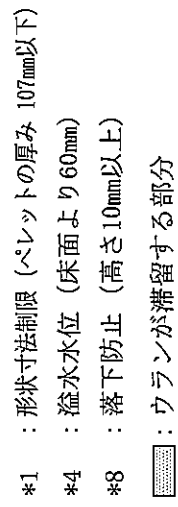 *1 : 形状寸法制限 (ペレットの厚み 107mm以下)
*4 : 溢水水位 (床面より60mm)
*8 : 落下防止 (高さ10mm以上)
: ウランが滞留する部分